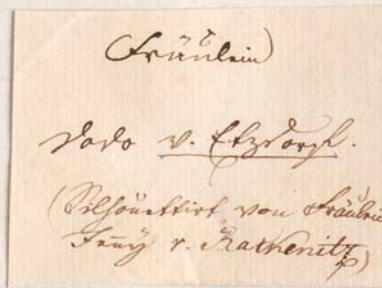 Fräulein
Dodo v. Etzdorf.
(Silhouettirt von Fräulein
Jenny v. Rathenitz)